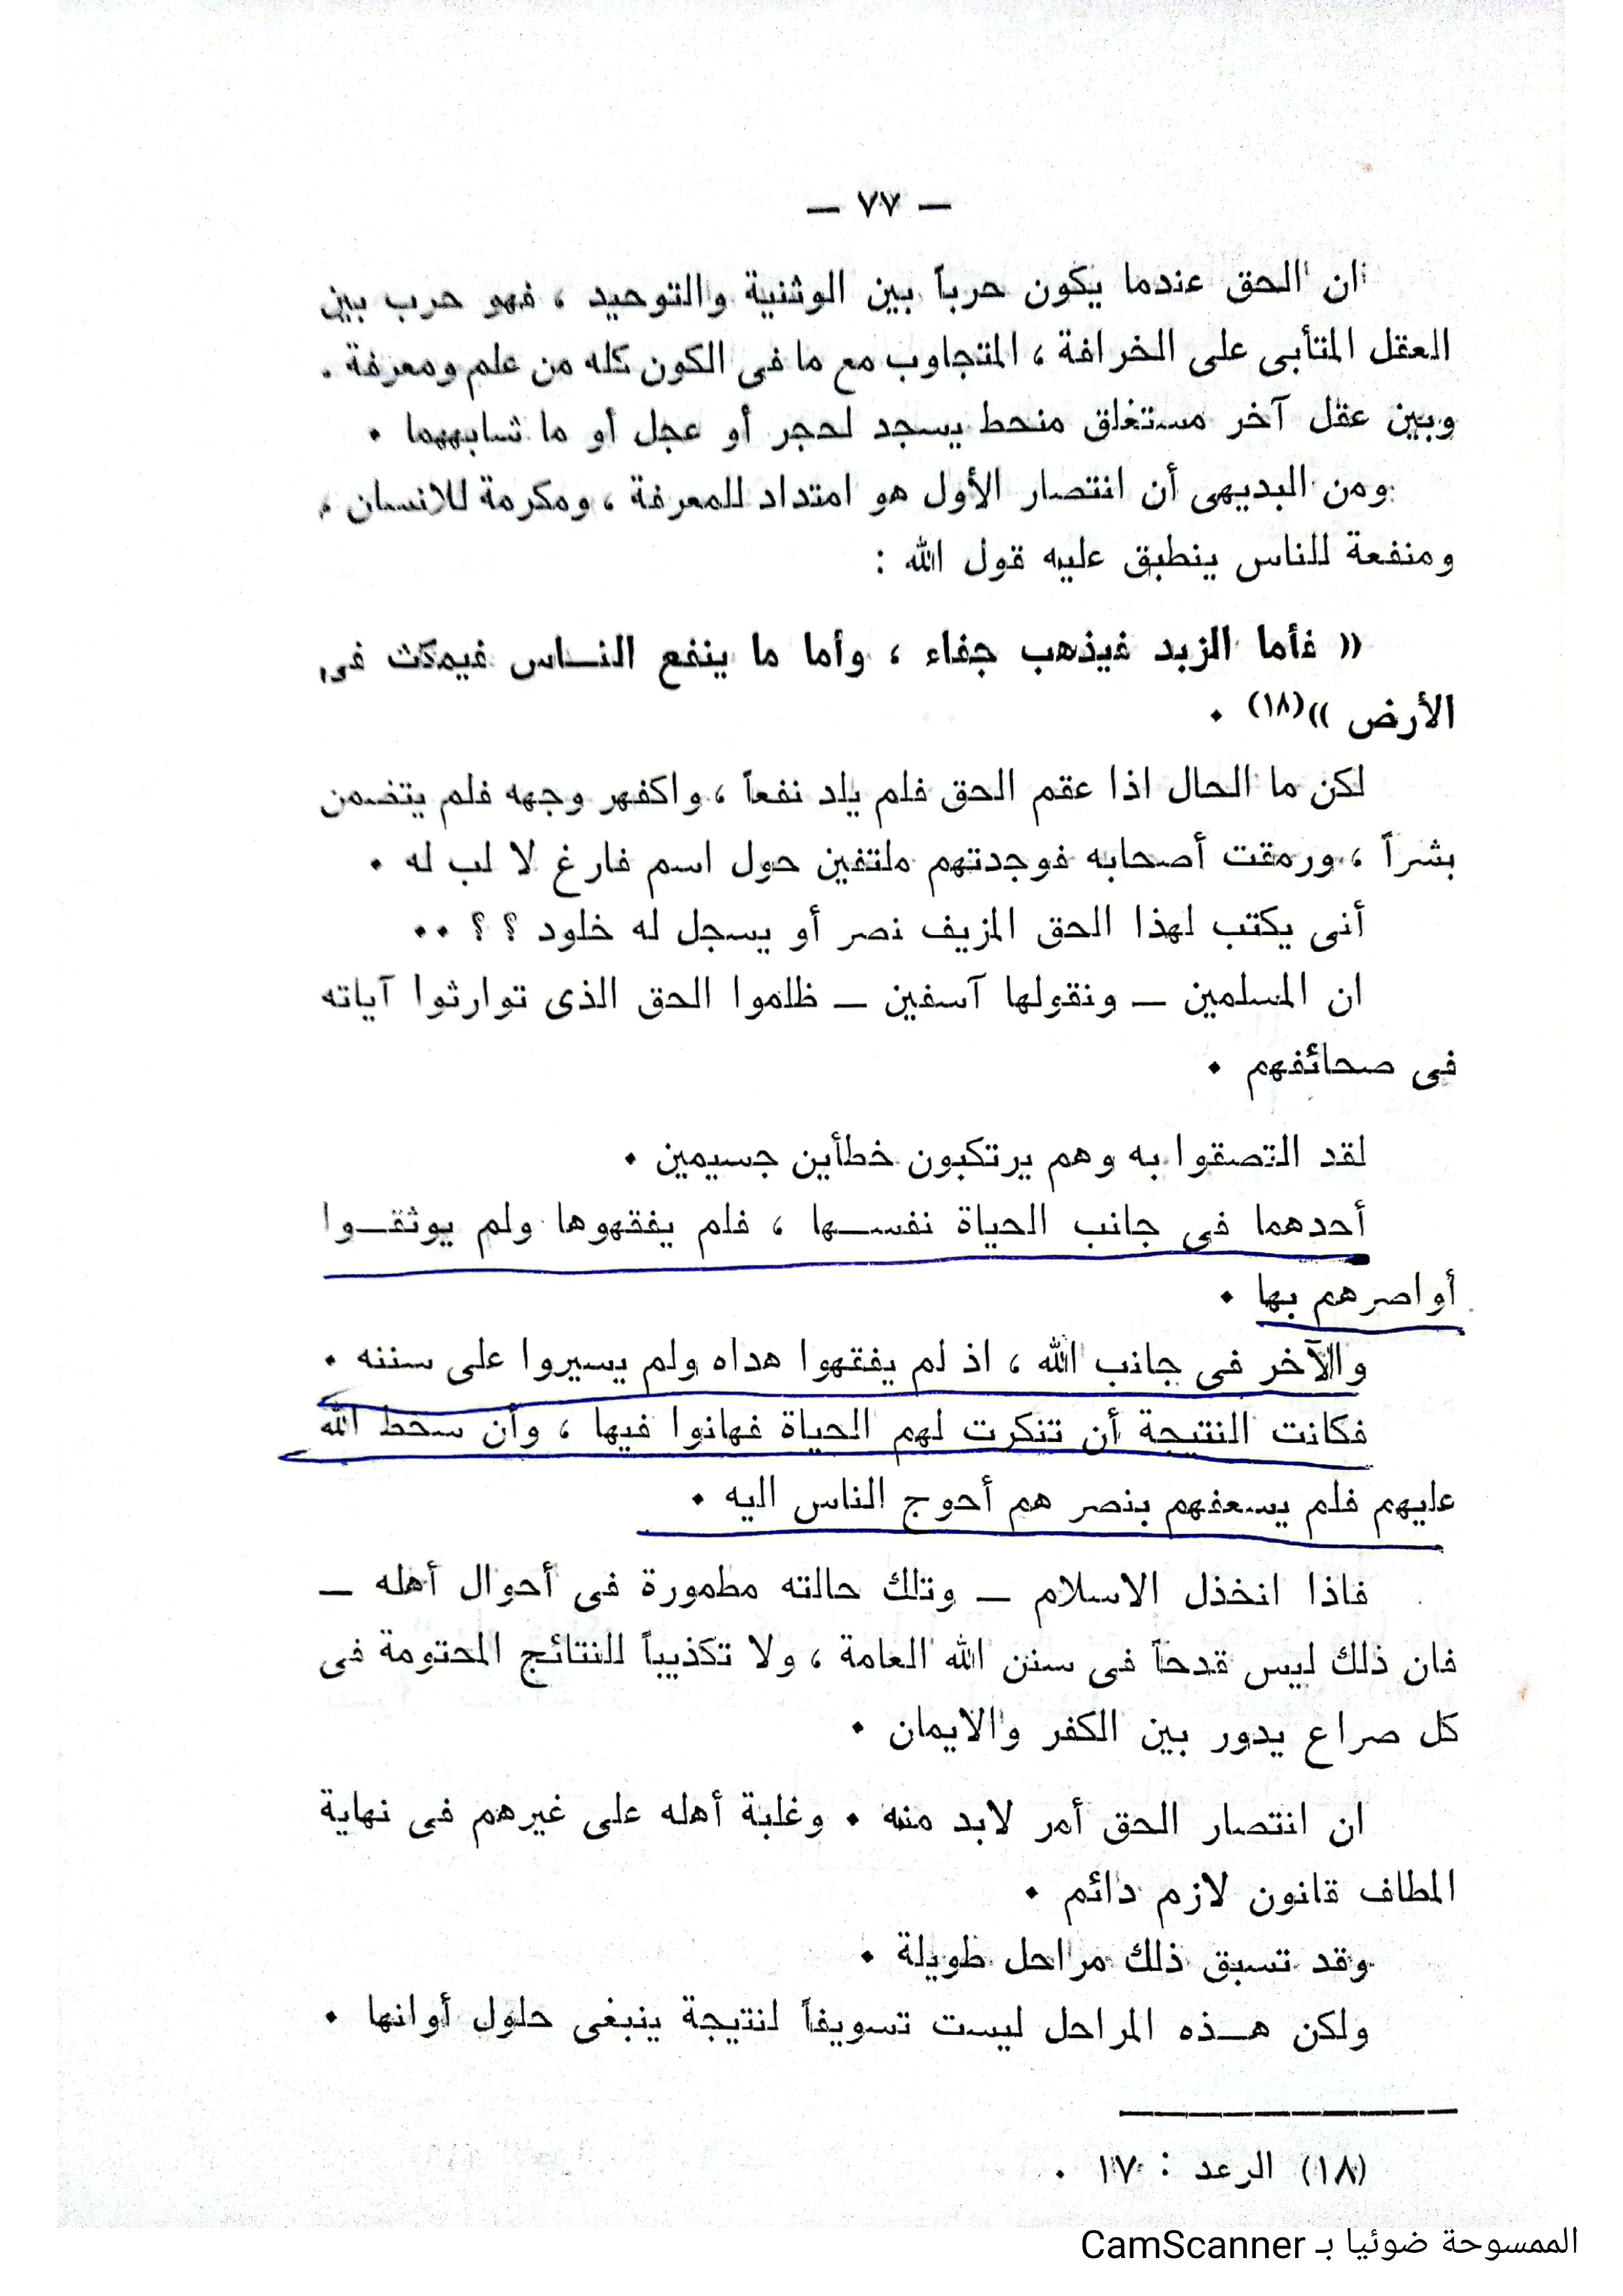 — ٧٧ —
ان الحق عندما يكون حرباً بين الوثنية والتوحيد ، فهو حرب بين
العقل المتأبى على الخرافة ، المتجاوب مع ما فى الكون كله من علم ومعرفة .
وبين عقل آخر مستغلق منحط يسجد لحجر أو عجل أو ما شابههما .
ومن البديهى أن انتصار الأول هو امتداد للمعرفة ، ومكرمة للانسان ،
ومنفعة للناس ينطبق عليه قول الله :
« فأما الزبد فيذهب جفاء ، وأما ما ينفع النـاس فيمكث فى
الأرض »(١٨) .
لكن ما الحال اذا عقم الحق فلم يلد نفعاً ، واكفهر وجهه فلم يتضمن
بشراً ، ورمقت أصحابه فوجدتهم ملتفين حول اسم فارغ لا لب له .
أنى يكتب لهذا الحق المزيف نصر أو يسجل له خلود ؟ ؟ ..
ان المسلمين — ونقولها آسفين — ظلموا الحق الذى توارثوا آياته
فى صحائفهم .
لقد التصقوا به وهم يرتكبون خطأين جسيمين .
أحدهما فى جانب الحياة نفسـها ، فلم يفقهوها ولم يوثقـوا
أواصرهم بها .
والآخر فى جانب الله ، اذ لم يفقهوا هداه ولم يسيروا على سننه .
فكانت النتيجة أن تنكرت لهم الحياة فهانوا فيها ، وأن سخط الله
عليهم فلم يسعفهم بنصر هم أحوج الناس اليه .
فاذا انخذل الاسلام — وتلك حالته مطمورة فى أحوال أهله —
فان ذلك ليس قدحاً فى سنن الله العامة ، ولا تكذيباً للنتائج المحتومة فى
كل صراع يدور بين الكفر والايمان .
ان انتصار الحق أمر لابد منه . وغلبة أهله على غيرهم فى نهاية
المطاف قانون لازم دائم .
وقد تسبق ذلك مراحل طويلة .
ولكن هـذه المراحل ليست تسويفاً لنتيجة ينبغى حلول أوانها .
(١٨) الرعد : ١٧ .
الممسوحة ضوئيا بـ CamScanner